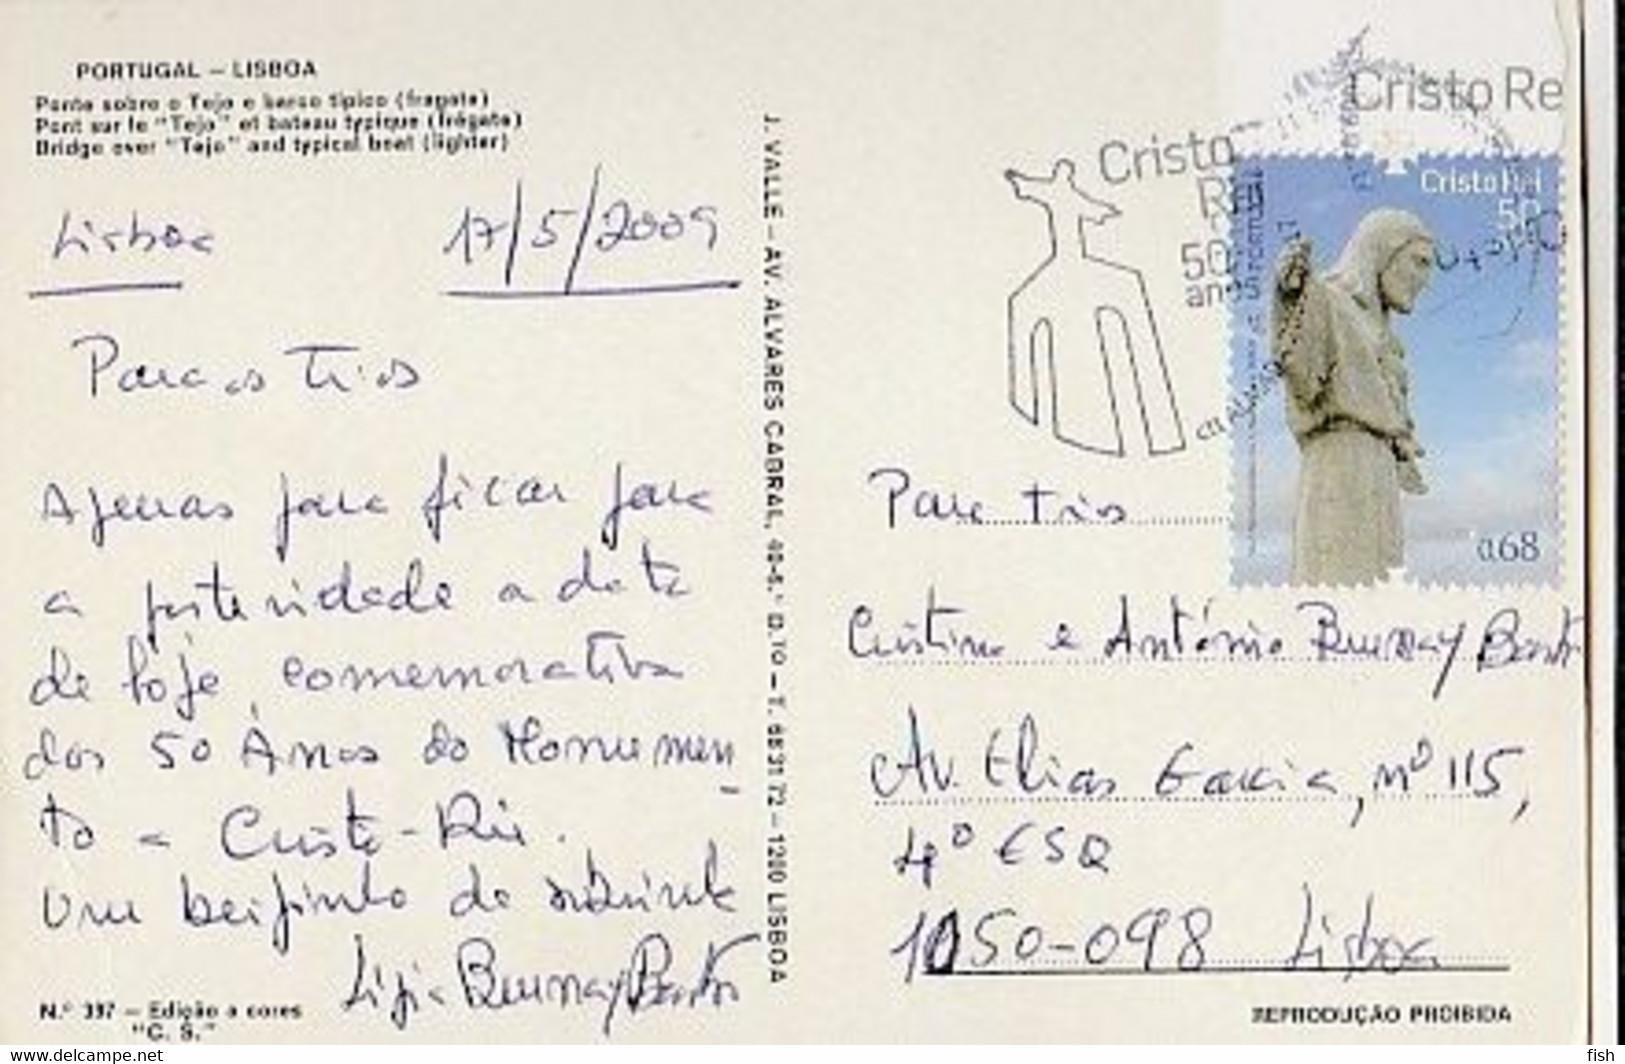 PORTUGAL – LISBOA
Ponte sobre o Tejo e barco típico (fragata)
Pont sur le "Tejo" et bateau typique (frégate)
Bridge over "Tejo" and typical boat (lighter)
Lisboa 17/5/2009
Para os tios
Apenas para ficar para
a posteridade a data
de hoje, comemorativa
dos 50 Anos do Monumen
to a Cristo-Rei.
Um beijinho da sobrinha
Lígia Burnay Bastos
N.º 397 – Edição a cores
"C. S."
J. VALLE – AV. ALVARES CABRAL, 40-5.º D.TO – T. 68 31 72 – 1200 LISBOA
Cristo Re
Cristo
Rei
50
anos
Cristo Rei
50
0.68
Para tios
Cristina e António Burnay Bastos
Av. Elias Garcia, nº 115,
4º ESQ
1050-098 Lisboa
REPRODUÇÃO PROIBIDA
fish